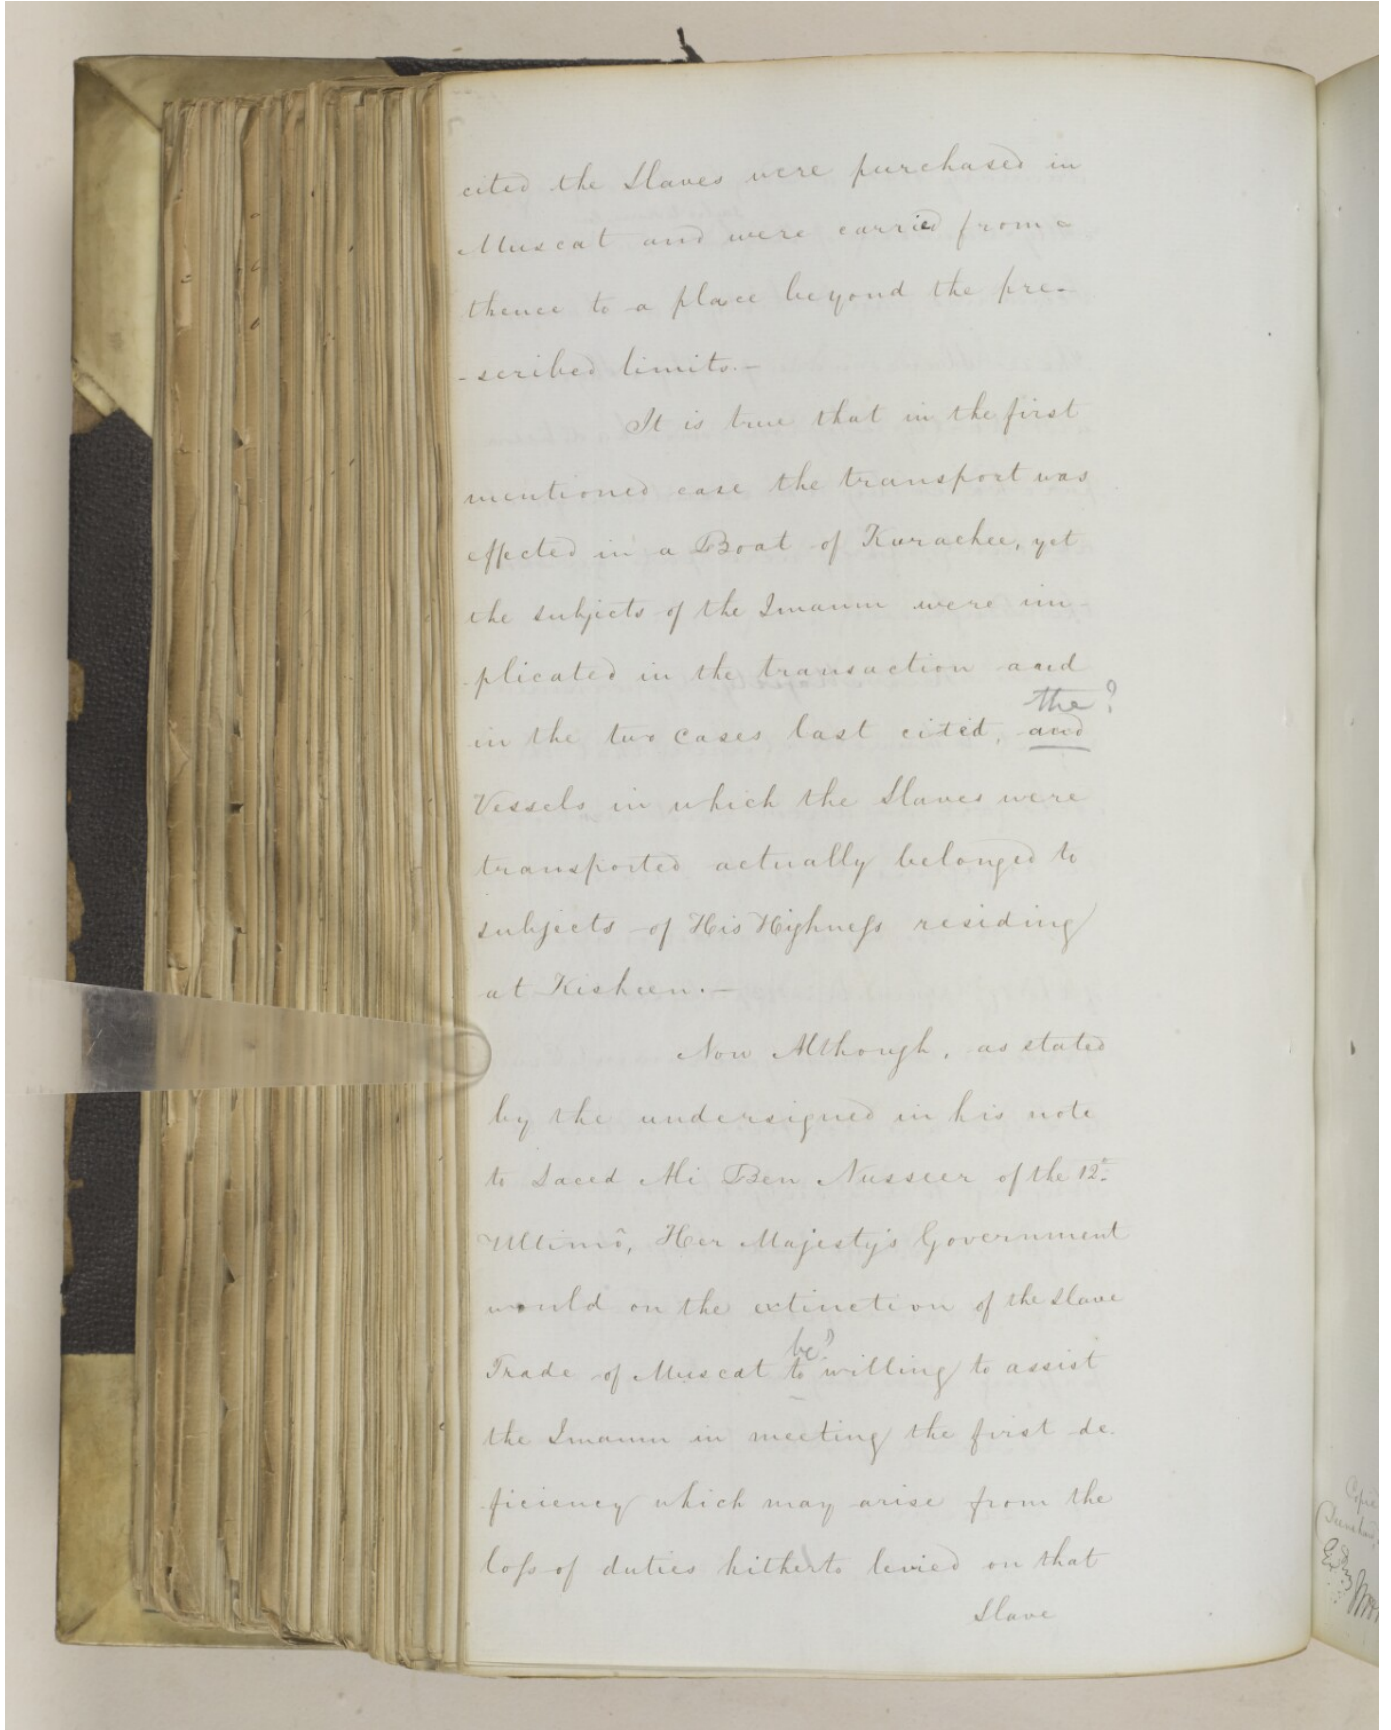 cited the Slaves were purchased in
Muscat and were carried from-
thence to a place beyond the pre-
-scribed limits.-
It is true that in the first
mentioned case the transport was
effected in a Boat of Kurachee, yet
the subjects of the Imaum were im-
-plicated in the transaction and
the?
in the two cases last cited, and
Vessels in which the Slaves were
transported actually belonged to
subjects of His Highness residing
at Kisheen.-
Now Although, as stated
by the undersigned in his note
to Saeed Ali Ben Nusseer of the 12th
Ultimo, Her Majesty's Government
would on the extinction of the Slave
be?
Trade of Muscat to willing to assist
the Imaum in meeting the first de-
ficiency which may arise from the
loss of duties hitherto levied on that
Slave